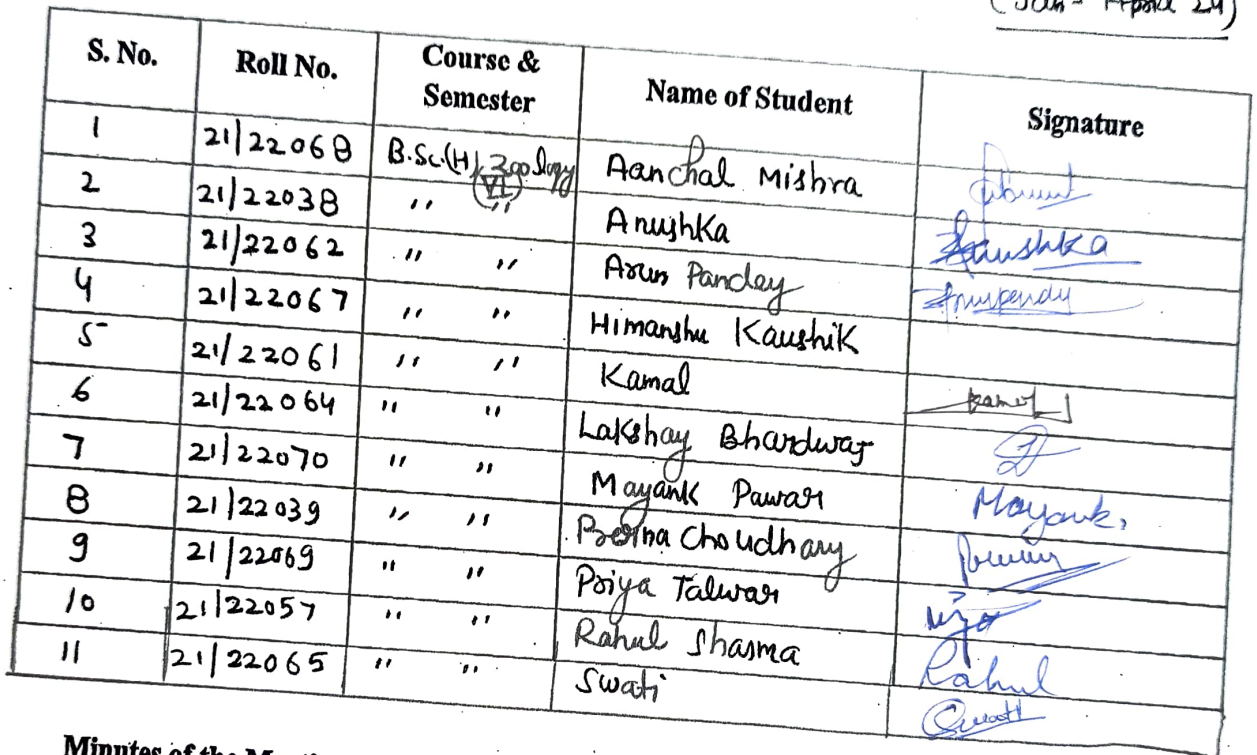 (Jan - April 24)
S. No. Roll No. Course & Semester Name of Student Signature
1 21/22068 B.Sc.(H) Zoology (VI) Aanchal Mishra
2 21/22038 " " Anushka Anushka
3 21/22062 " " Arun Pandey Arunpandey
4 21/22067 " " Himanshu Kaushik
5 21/22061 " " Kamal Kamal
6 21/22064 " " Lakshay Bhardwaj
7 21/22070 " " Mayank Pawar Mayank.
8 21/22039 " " Prerna Choudhary
9 21/22069 " " Priya Talwar
10 21/22057 " " Rahul Sharma Rahul
11 21/22065 " " Swati Swati
Minutes of the